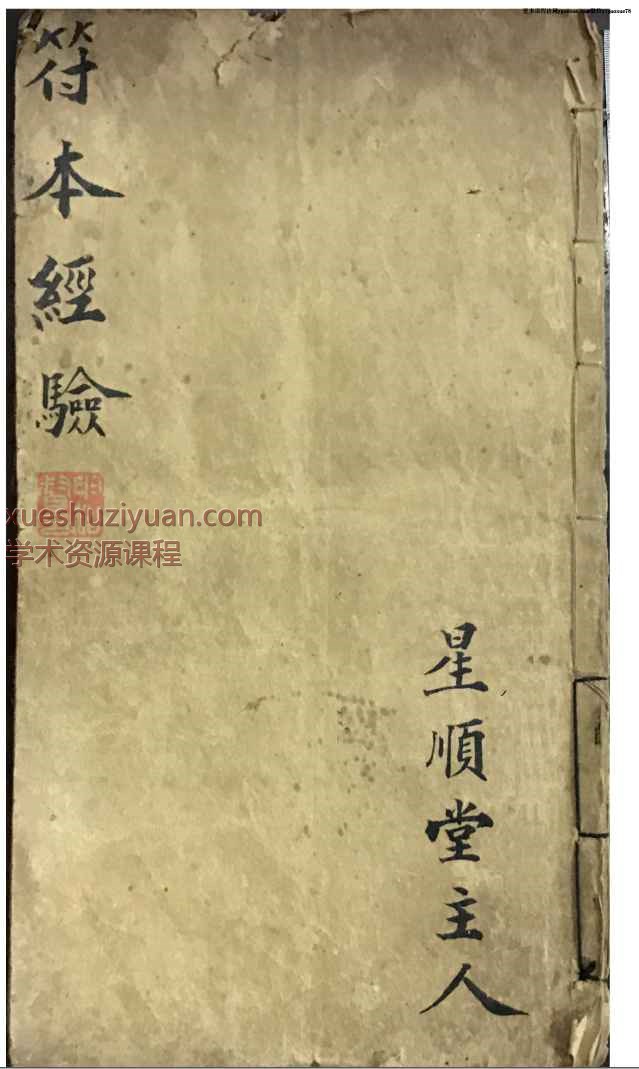 符本經驗
xueshuziyuan.com
学术资源课程
星順堂主人